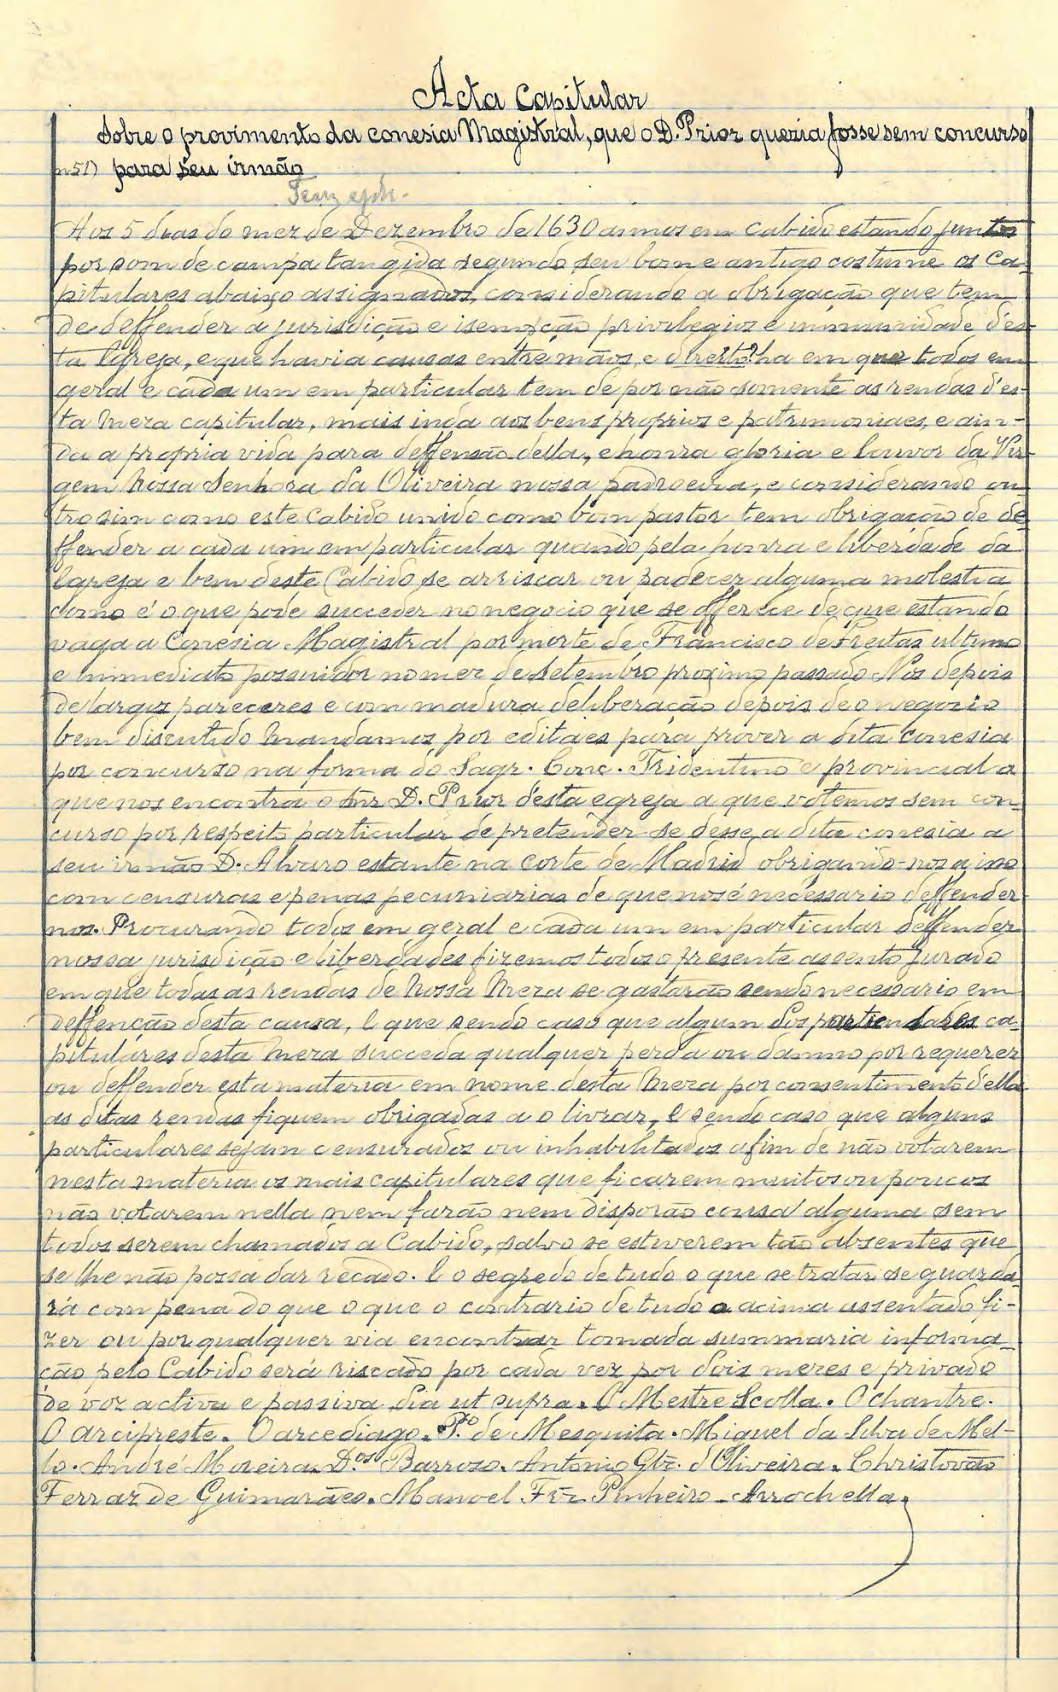 Acta Capitular
Sobre o provimento da conesia Magistral, que o D. Prior queria fosse sem concurso
para seu irmão
Aos 5 dias do mez de Dezembro de 1630 annos em cabido estando juntos
por som de campa tangida segundo seu bom e antigo costume os Ca-
pitulares abaixo assignados, considerando a obrigação que tem
de deffender a jurisdição e isempção privilegios e immunidade d'es-
ta Igreja, e que havia causas entre mãos, e direito? ha em que todos em
geral e cada um em particular tem de por não somente as rendas d'es-
ta Meza capitular, mais inda aos bens proprios e patrimoniaes, e ain-
da a propria vida para deffensão della, e honra gloria e louvor da Vir-
gem Nossa Senhora da Oliveira nossa padroeira, e considerando ou-
trosim como este Cabido unido como bom pastor tem obrigação de de-
ffender a cada um em particular quando pela honra e liberdade da
Igreja e bem deste Cabido se arriscar ou padecer alguma molestia
como é o que pode succeder no negocio que se offerece de que estando
vaga a Conesia Magistral por morte de Francisco de Freitas ultimo
e immediato possuidor no mez de Setembro proximo passado Nós depois
de largos pareceres e com madura deliberação depois de o negocio
bem discutido Mandamos por editaes para prover a dita Conesia
por concurso na forma do Sagr. Conc. Tridentino e provincial a
que nos encontra o Snr D. Prior d'esta egreja a que votemos sem con-
curso por respeito particular de pretender se desse a dita conesia a
seu irmão D. Alvaro estante na Corte de Madrid obrigando-nos a isso
com censuras e penas pecuniarias de que nos é necessario deffender-
nos. Procurando todos em geral e cada um em particular deffender
nossa jurisdição e liberdades fizemos todos o presente assento jurado
em que todas as rendas de Nossa Meza se gastarão sendo necessario em
deffenção desta causa, E que sendo caso que algum dos particulares ca-
pitulares desta Meza succeda qualquer perda ou damno por requerer
ou deffender esta materia em nome desta Meza por consentimento d'ella
as ditas rendas fiquem obrigadas a o livrar, E sendo caso que alguns
particulares sejam censurados ou inhabilitados afim de não votarem
nesta materia os mais capitulares que ficarem muitos ou poucos
não votarem nella nem farão nem disporão cousa alguma sem
todos serem chamados a Cabido, salvo se estiverem tão absentes que
se lhe não possa dar recado. E o segredo de tudo o que se tratar se guarda-
rá com pena do que o que o contrario de tudo o acima assentado fi-
zer ou por qualquer via encontrar tomada summaria informa-
ção pelo Cabido será riscado por cada vez por dois mezes e privado
de voz activa e passiva dia ut supra. O Mestre Scolla. O chantre.
O arcipreste. O arcediago. P.º de Mesquita. Miguel da Silva de Mel-
lo. André Moreira. D.os Barrozo. Antonio Glz. d'Oliveira. Christovão
Ferraz de Guimarães. Manoel Frz Pinheiro. Arrochella.